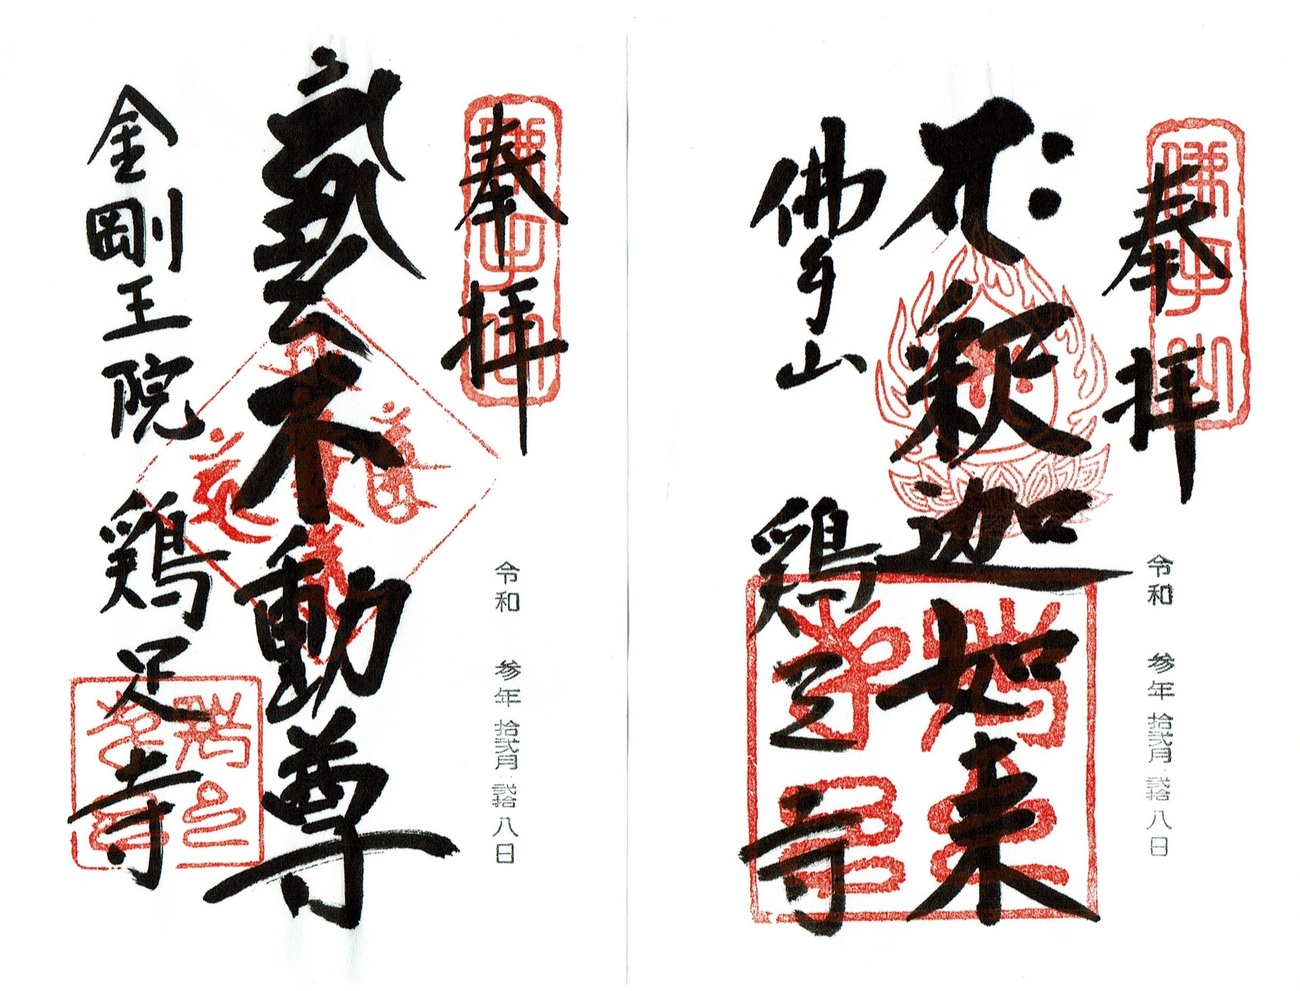 奉拝
令和 参年 拾弐月 弐拾八日
釈迦如来
佛手山
鶏足寺
奉拝
令和 参年 拾弐月 弐拾八日
不動尊
金剛王院
鶏足寺